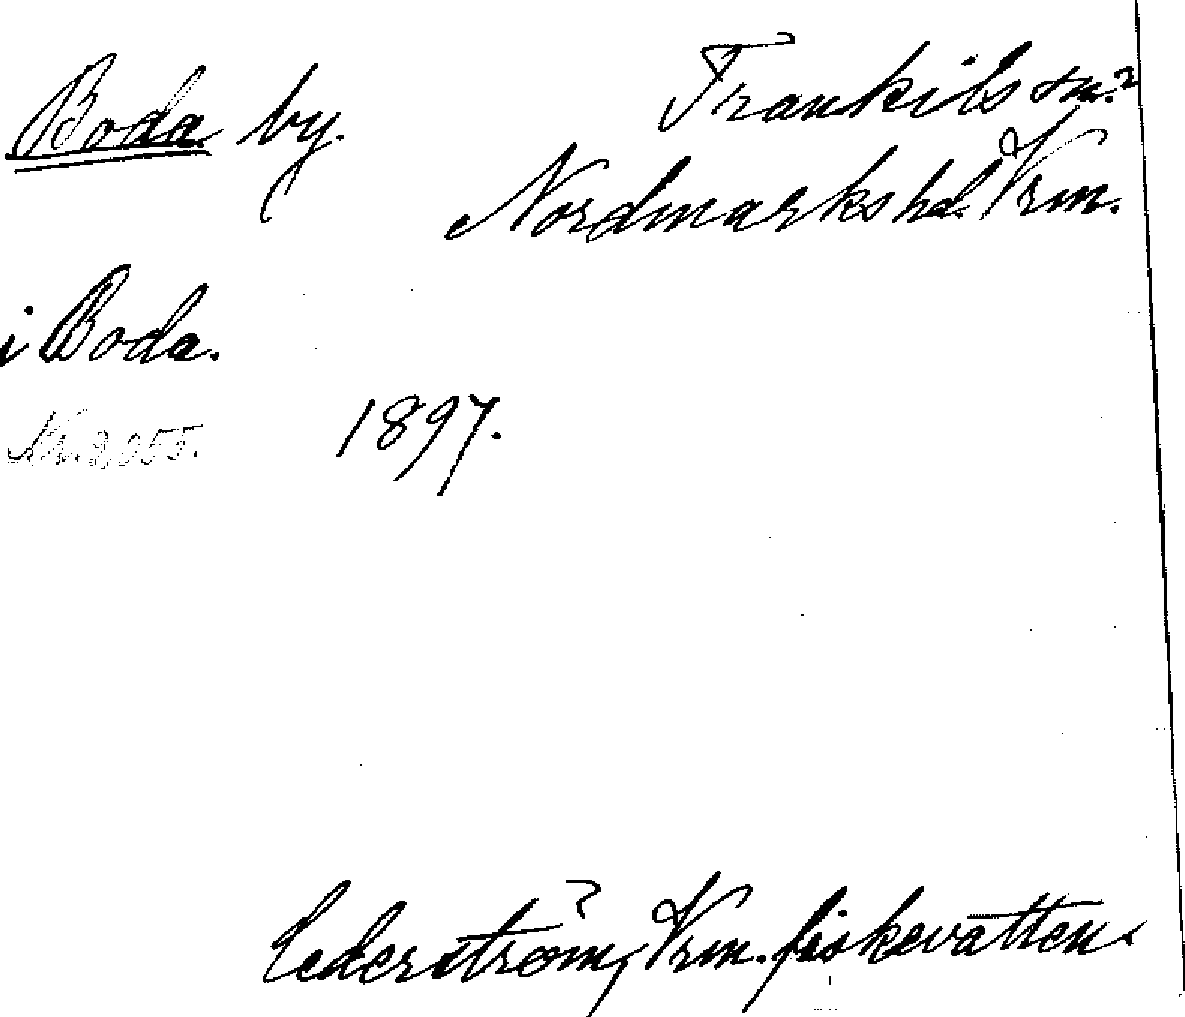 Boda by.
Trankils sn.?
Nordmarks hd. Vrm.
i Boda.
Nr. 2055.
1897.
Cederström, Vrm. fiskevatten.